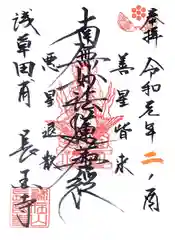 奉拝
令和元年
二ノ酉
善星皆来
南無妙法蓮華経
悪星退散
浅草田甫
長国寺